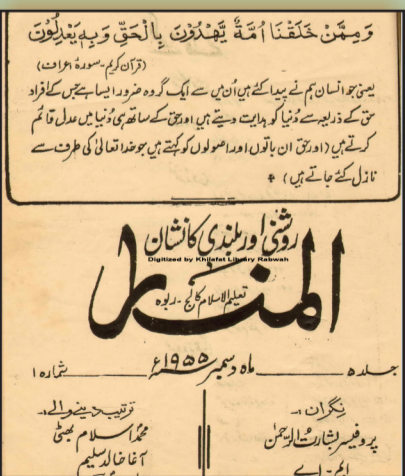 وَمِمَّنْ خَلَقْنَا اُمَّةٌ يَّهْدُوْنَ بِالْحَقِّ وَبِهٖ يَعْدِلُوْنَ
(قرآن کریم - سورۃ اعراف)
یعنی جو انسان ہم نے پیدا کئے ہیں اُن میں سے ایک گروہ ضرور ایسا ہے جس کے افراد
حق کے ذریعہ سے دُنیا کو ہدایت دیتے ہیں اور حق کے ساتھ ہی دُنیا میں عدل قائم
کرتے ہیں (اور حق ان باتوں اور اصولوں کو کہتے ہیں جو خدا تعالیٰ کی طرف سے
نازل کئے جاتے ہیں)
روشنی اور بلندی کا نشان
Digitized by Khilafat Library Rabwah
المنار
تعلیم الاسلام کالج - ربوہ
جلد ۵ ماہ دسمبر ۱۹۵۵ء شمارہ ۱
نگران :- ترتیب دینے والے :-
پروفیسر بشارت الرحمٰن محمد اسلام بھٹی
ایم - اے آغا خالد سلیم